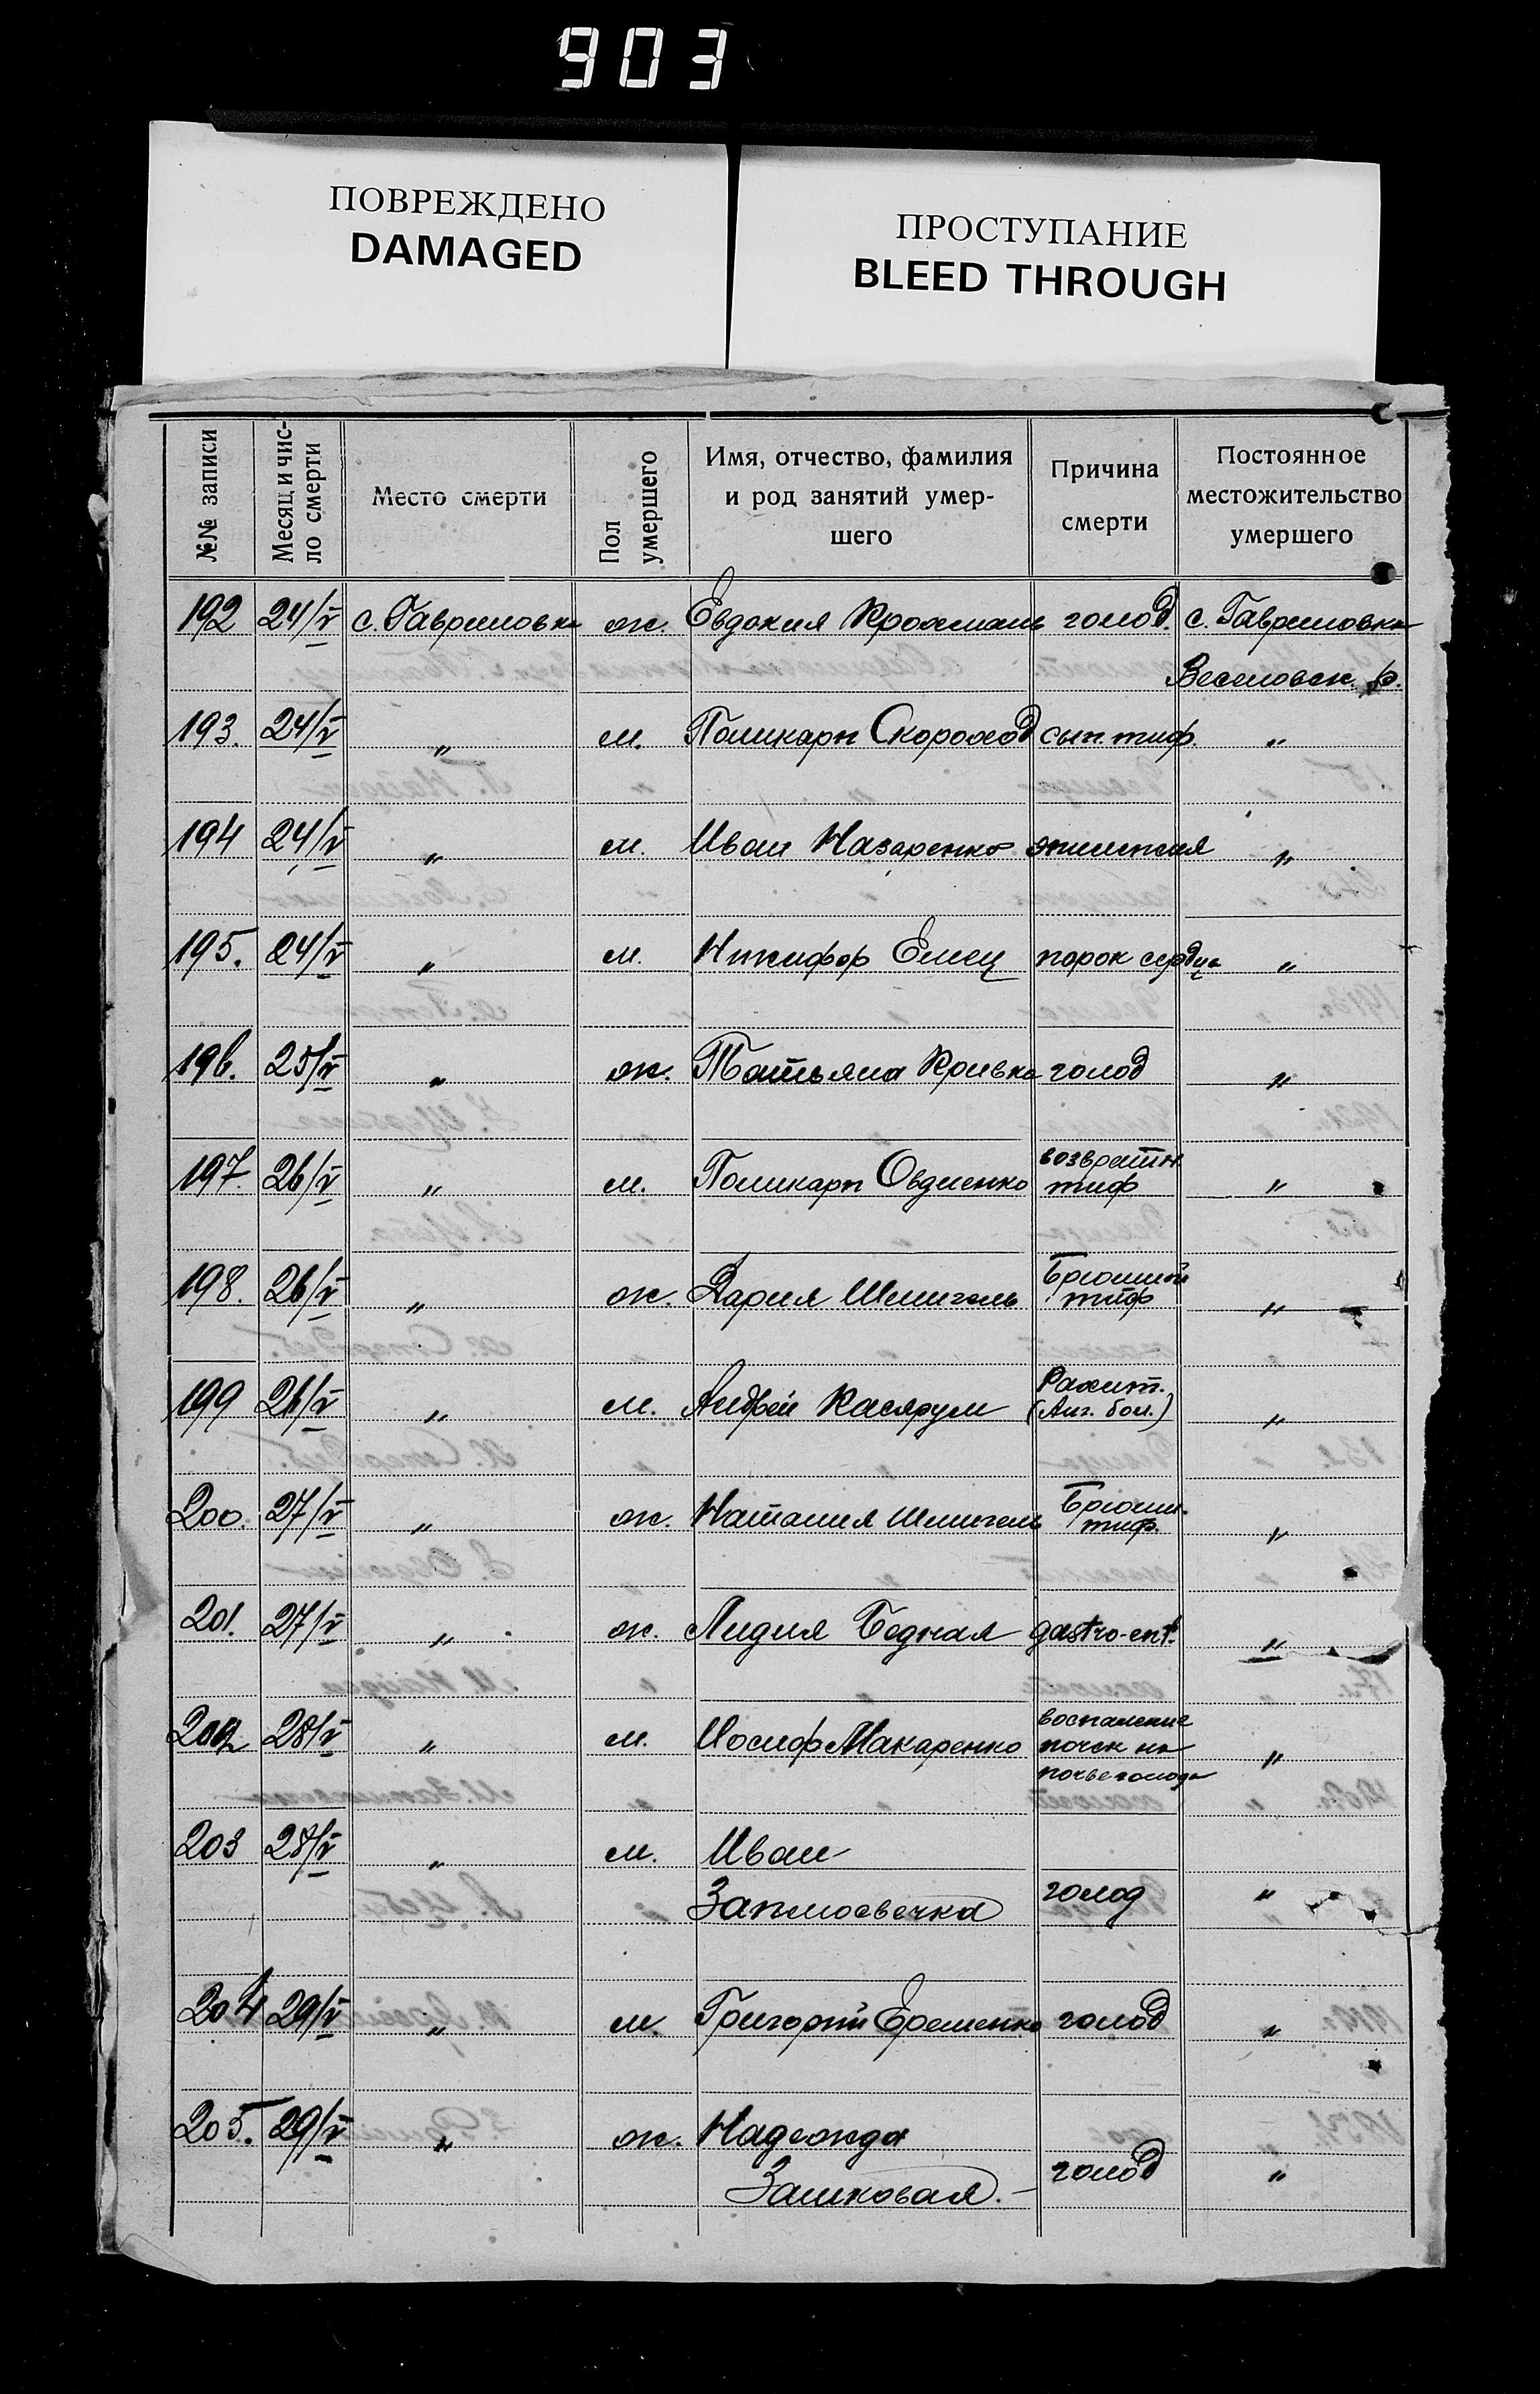 903
ПОВРЕЖДЕНО
DAMAGED
ПРОСТУПАНИЕ
BLEED THROUGH
№№ записи
Месяц и чис-
ло смерти
Место смерти
Пол
умершего
Имя, отчество, фамилия
и род занятий умер-
шего
Причина
смерти
Постоянное
местожительство
умершего
192 24/V с. Гавриловка ж. Евдокия Крохмаль голод. с. Гавриловка
Веселовск. р.
193. 24/V " м. Поликарп Скороход сып. тиф. "
194 24/V " м. Иван Назаренко эпилепсия "
195. 24/V " м. Никифор Емец порок сердца "
196. 25/V " ж. Татьяна Кривко голод "
197. 26/V " м. Поликарп Овдиенко возвратн.
тиф "
198. 26/V " ж. Дария Шпигель Брюшной
тиф "
199 26/V " м. Андрей Рахит.
(Анг. бол.) "
200. 27/V " ж. Наталия Шпигель Брюшн.
тиф. "
201. 27/V " ж. Лидия Бедная gastro-ent. "
202 28/V " м. Иосиф Макаренко воспаление
почек на
почве голода "
203 28/V " м. Иван
Заплюсвечка голод "
204 29/V " м. Григорий Еременко голод "
205. 29/V " ж. Надежда
Зашковая. голод "